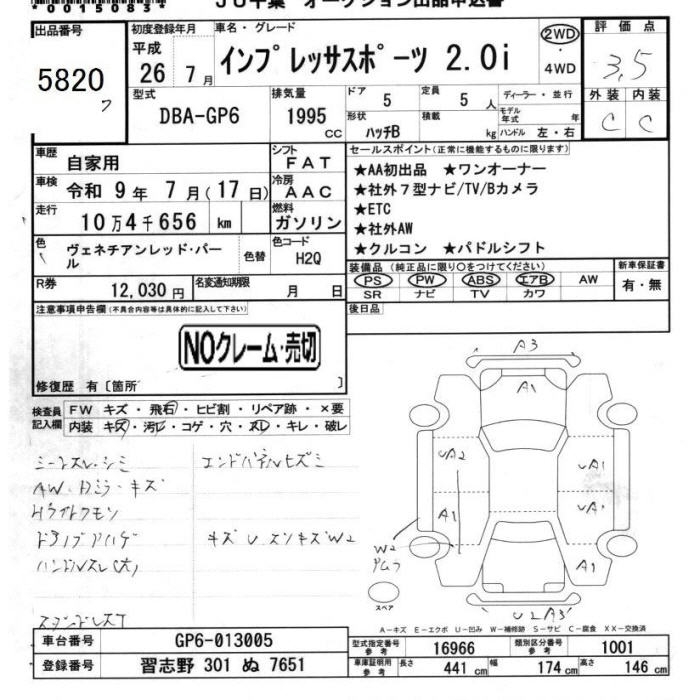 *00015083*
出品番号 5820
初度登録年月 平成 26 年 7 月
車名・グレード インプレッサスポーツ 2.0i
2WD・4WD
評価点 3,5
外装 C 内装 C
型式 DBA-GP6
排気量 1995 cc
ドア 5
定員 5 人
形状 ハッチB
積載 kg
ディーラー・並行
モデル年式 年
ハンドル 左・右
車歴 自家用
シフト FAT
車検 令和 9 年 7 月(17 日)
冷房 AAC
走行 10万4千656 km
燃料 ガソリン
色 ヴェネチアンレッド・パール
色替
色コード H2Q
R券 12,030 円
名変通知期限 月 日
セールスポイント(正常に機能するものに限ります)
★AA初出品 ★ワンオーナー
★社外7型ナビ/TV/Bカメラ
★ETC
★社外AW
★クルコン ★パドルシフト
装備品(純正品に限り○をつけてください)
PS PW ABS エアB AW
SR ナビ TV カワ
新車保証書 有・無
後日品
注意事項申告欄(不具合内容等は具体的に記入して下さい)
NOクレーム・売切
修復歴 有〔箇所 〕
検査員記入欄
FW キズ・飛石・ヒビ割・リペア跡・×要
内装 キズ・汚レ・コゲ・穴・スレ・キレ・破レ
シートスレ・シミ
エンドパネルヒズミ
AW・Dミラ・キズ
ハンドルスレ(大)
キズ U スリキズ W2
A3
A1
UA2
UA1
A1
UA1
W2
A1
スペア
A-キズ E-エクボ U-凹み W-補修跡 S-サビ C-腐食 XX-交換済
車台番号 GP6-013005
登録番号 習志野 301 ぬ 7651
型式指定番号 参考 16966
類別区分番号 参考 1001
車庫証明用 参考 長さ 441 cm 幅 174 cm 高さ 146 cm